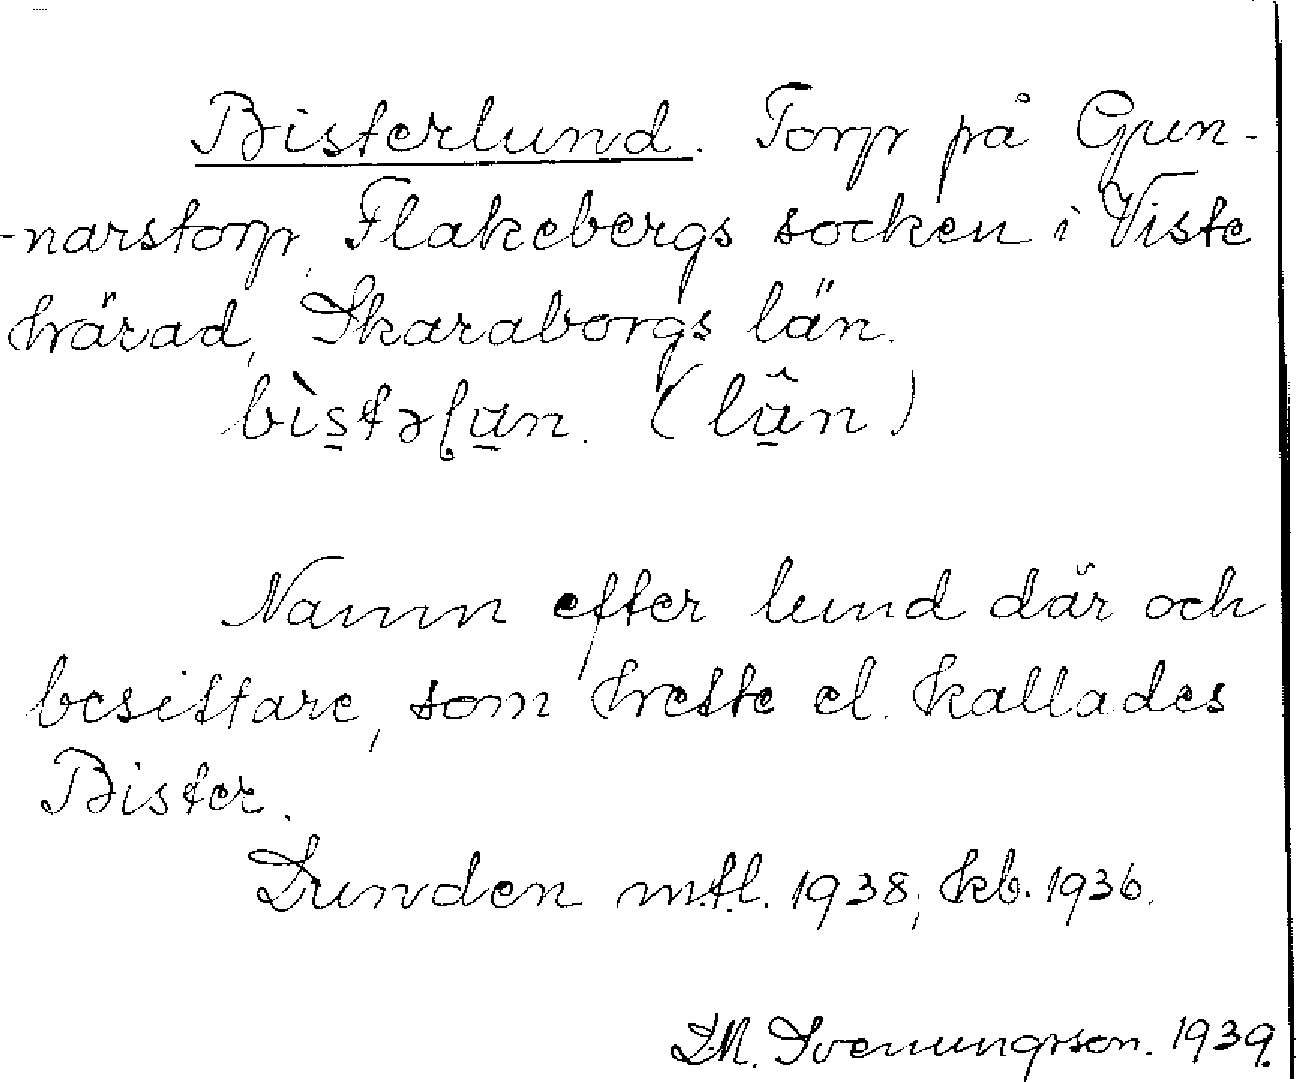 Bisterlund. Torp på Gun-
-narstorp, Flakebergs socken i Viste
härad, Skaraborgs län.
bìs̱təɭu̱n. (lû̱n)
Namn efter lund där och
besittare, som hette el. kallades
Bister.
Lunden mtl. 1938; kb. 1936.
Svenungsson. 1939.